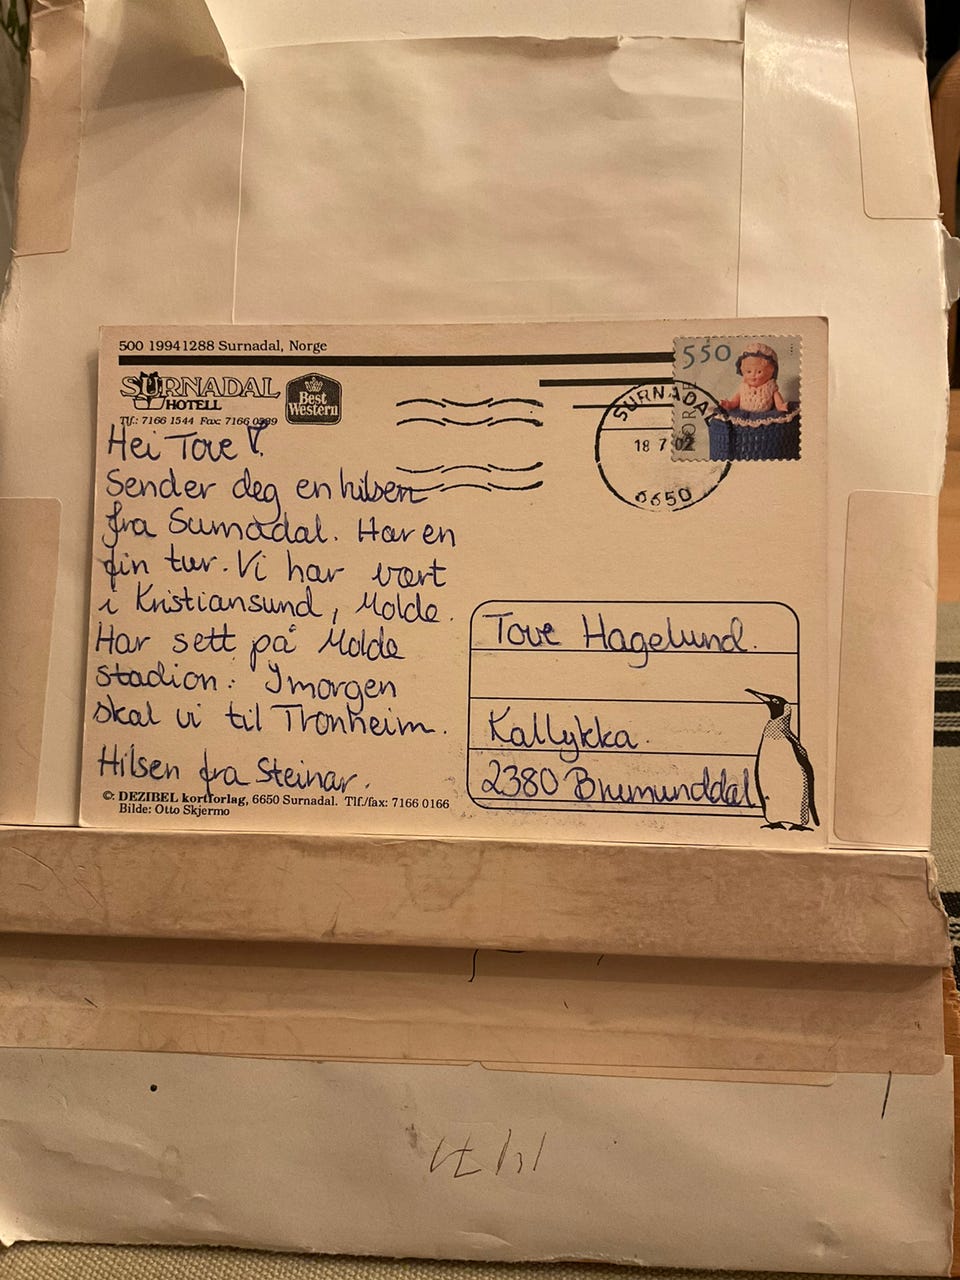 500 19941288 Surnadal, Norge
SURNADAL
HOTELL
Best
Western
Tlf.: 7166 1544 Fax: 7166 0989
550
NORGE
SURNADAL
18 7 02
6650
Hei Tove!
Sender deg en hilsen
fra Surnadal. Har en
fin tur. Vi har vært
i Kristiansund, Molde.
Har sett på Molde
stadion. Imorgen
skal vi til Tronheim.
Hilsen fra Steinar.
Tove Hagelund.
Kallykka
2380 Brumunddal
©: DEZIBEL kortforlag, 6650 Surnadal. Tlf./fax: 7166 0166
Bilde: Otto Skjermo